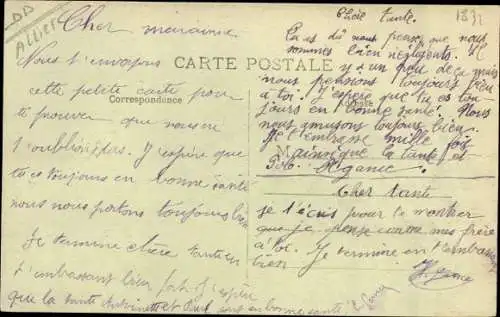 Cher marainne
Nous t'envoyons
cette petite carte pour
te prouver que nous ne
t'oublions pas. J'espère que
tu es toujours en bonne santé
nous nous portons toujours bien
Je termine chère tante en
t'embrassant bien fort J'espère
que la tante Antoinette et Paul sont en bonne santé
DD
ALLIER
CARTE POSTALE
Correspondance
Adresse
1832
Chère tante.
Tu as dû nous penser que nous
sommes bien négligents. Il
y a un peu de ça mais
nous pensions toujours bien
à toi. J'espère que tu es tou
jours en bonne santé. Nous
nous amusons toujours bien.
Je t'embrasse mille fois
Ainsi que la tante et
Cher tante
je t'écris pour te montrer
que je pense comme mes frère
à toi. Je termine en t'embrassant
bien